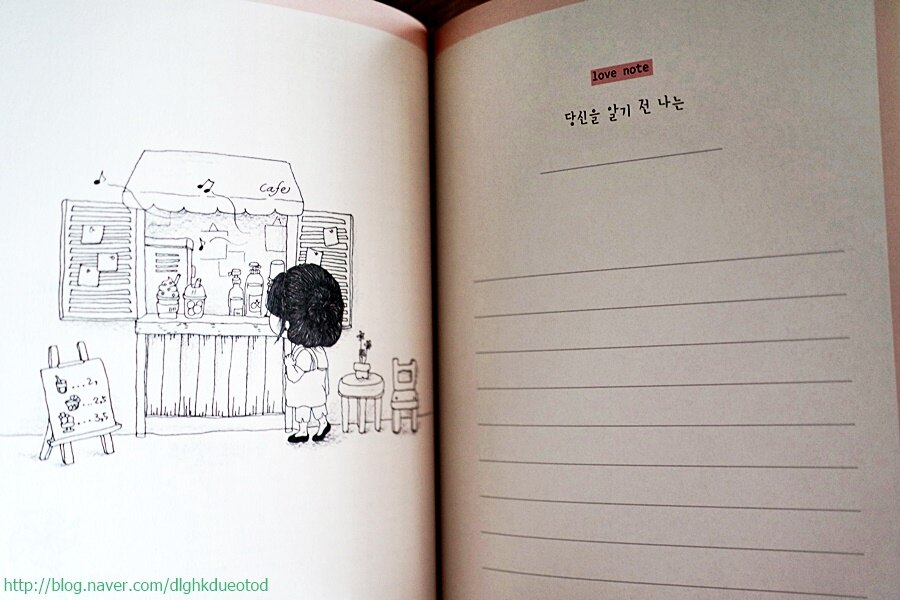 Cafe
...2,
...2.5
...3.5
love note
당신을 알기 전 나는
http://blog.naver.com/dlghkdueotod